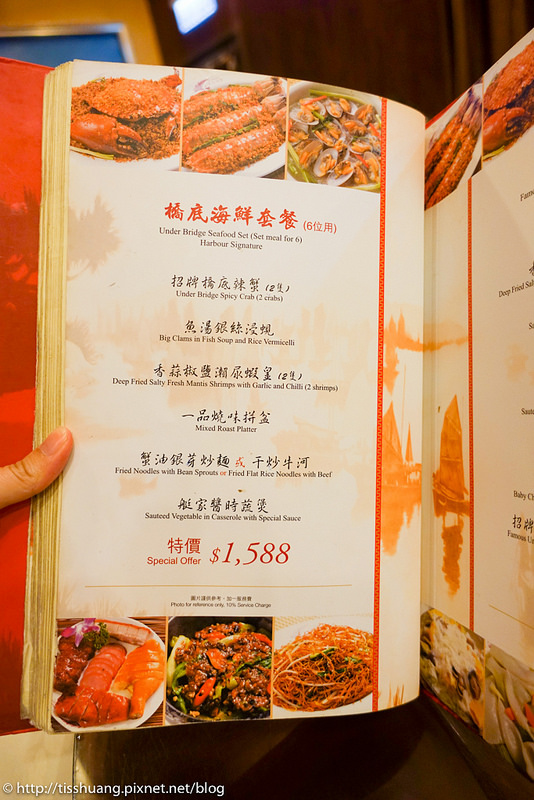 橋底海鮮套餐 (6位用)
Under Bridge Seafood Set (Set meal for 6)
Harbour Signature
招牌橋底辣蟹 (2隻)
Under Bridge Spicy Crab (2 crabs)
魚湯銀絲浸蜆
Big Clams in Fish Soup and Rice Vermicelli
香蒜椒鹽瀨尿蝦皇 (2隻)
Deep Fried Salty Fresh Mantis Shrimps with Garlic and Chilli (2 shrimps)
一品燒味拼盆
Mixed Roast Platter
蟹油銀芽炒麵 或 干炒牛河
Fried Noodles with Bean Sprouts or Fried Flat Rice Noodles with Beef
艇家醬時蔬煲
Sauteed Vegetable in Casserole with Special Sauce
特價
Special Offer $1,588
圖片謹供參考，加一服務費
Photo for reference only, 10% Service Charge
Deep Fried Sal
Saute
Baby Ch
招牌
Famous Un
© http://tisshuang.pixnet.net/blog